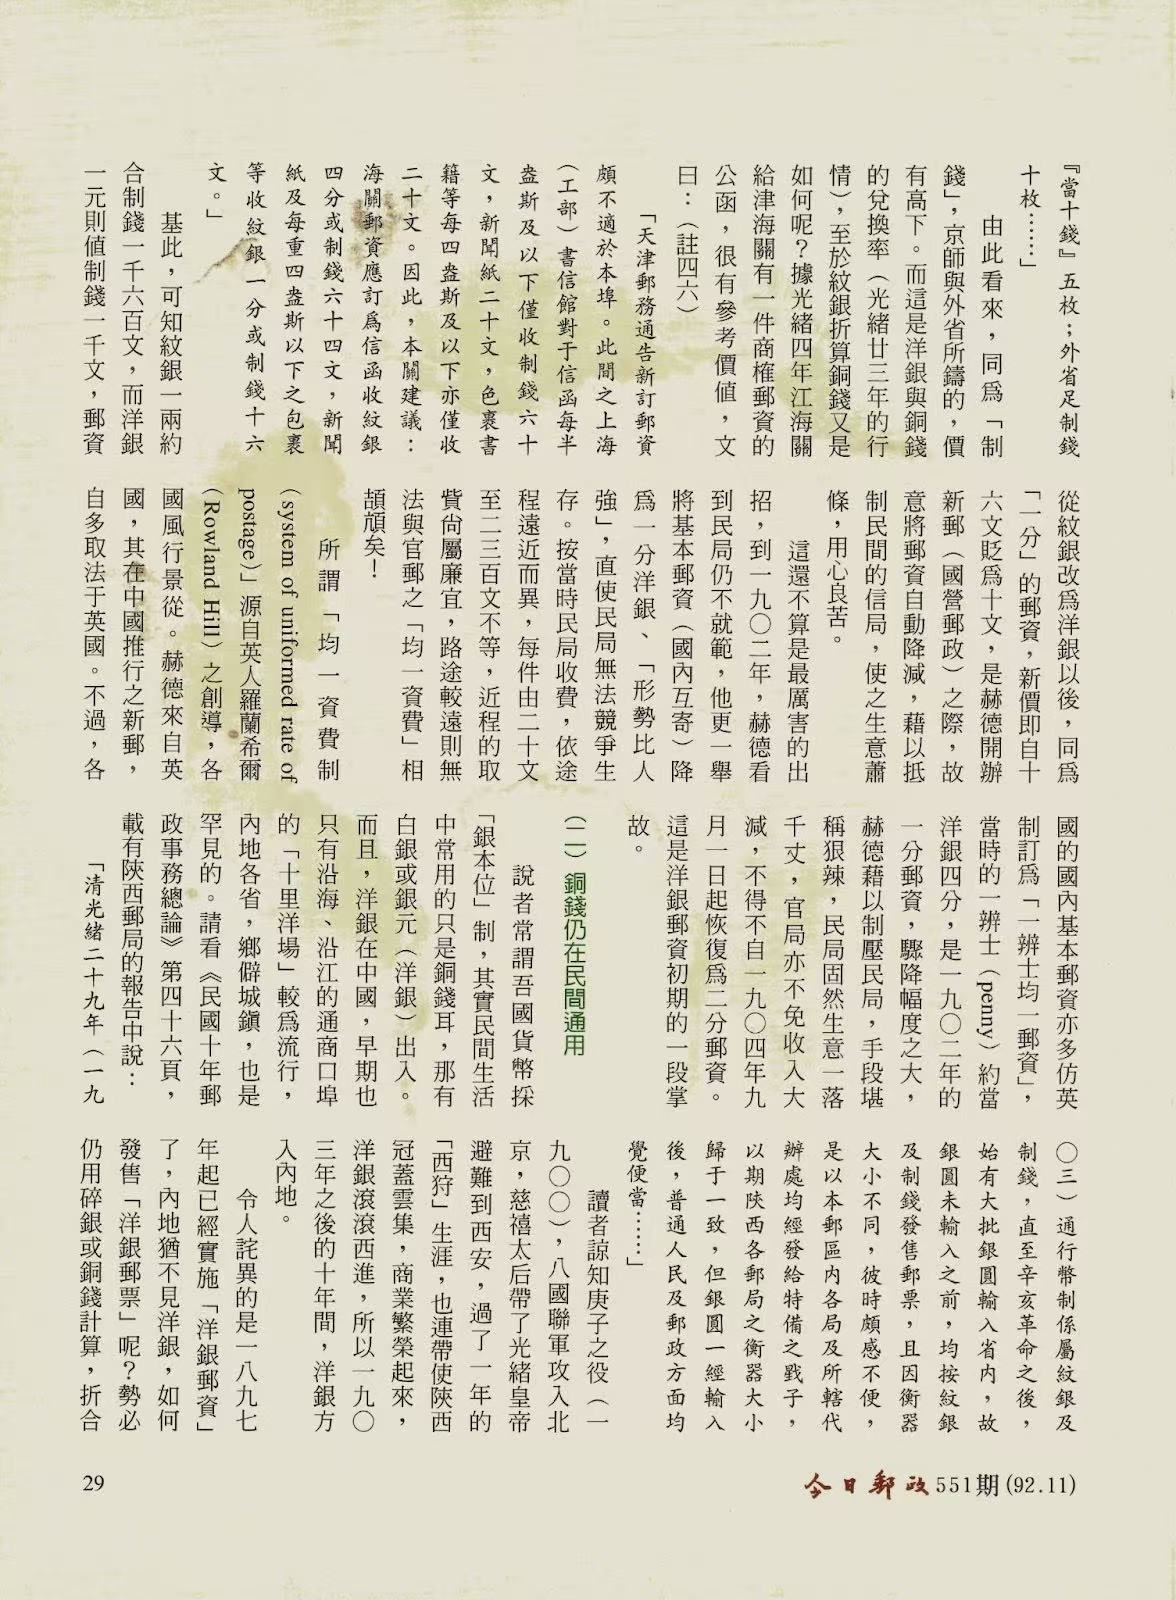 『當十錢』五枚；外省足制錢
十枚……」
由此看來，同爲「制
錢」，京師與外省所鑄的，價
有高下。而這是洋銀與銅錢
的兌換率（光緒廿三年的行
情），至於紋銀折算銅錢又是
如何呢？據光緒四年江海關
給津海關有一件商榷郵資的
公函，很有參考價值，文
曰：（註四六）
「天津郵務通告新訂郵資
頗不適於本埠。此間之上海
（工部）書信館對于信函每半
盎斯及以下僅收制錢六十
文，新聞紙二十文，色裹書
籍等每四盎斯及以下亦僅收
二十文。因此，本關建議：
海關郵資應訂爲信函收紋銀
四分或制錢六十四文，新聞
紙及每重四盎斯以下之包裹
等收紋銀一分或制錢十六
文。」
基此，可知紋銀一兩約
合制錢一千六百文，而洋銀
一元則值制錢一千文，郵資
從紋銀改爲洋銀以後，同爲
「一分」的郵資，新價即自十
六文貶爲十文，是赫德開辦
新郵（國營郵政）之際，故
意將郵資自動降減，藉以抵
制民間的信局，使之生意蕭
條，用心良苦。
這還不算是最厲害的出
招，到一九〇二年，赫德看
到民局仍不就範，他更一舉
將基本郵資（國內互寄）降
爲一分洋銀、「形勢比人
強」，直使民局無法競爭生
存。按當時民局收費，依途
程遠近而異，每件由二十文
至二三百文不等，近程的取
貲尙屬廉宜，路途較遠則無
法與官郵之「均一資費」相
頡頏矣！
所謂「均一資費制
（system of uniformed rate of
postage）」源自英人羅蘭希爾
（Rowland Hill）之創導，各
國風行景從。赫德來自英
國，其在中國推行之新郵，
自多取法于英國。不過，各
國的國內基本郵資亦多仿英
制訂爲「一辨士均一郵資」，
當時的一辨士（penny）約當
洋銀四分，是一九〇二年的
一分郵資，驟降幅度之大，
赫德藉以制壓民局，手段堪
稱狠辣，民局固然生意一落
千丈，官局亦不免收入大
減，不得不自一九〇四年九
月一日起恢復爲二分郵資。
這是洋銀郵資初期的一段掌
故。
（二）銅錢仍在民間通用
說者常謂吾國貨幣採
「銀本位」制，其實民間生活
中常用的只是銅錢耳，那有
白銀或銀元（洋銀）出入。
而且，洋銀在中國，早期也
只有沿海、沿江的通商口埠
的「十里洋場」較爲流行，
內地各省，鄉僻城鎮，也是
罕見的。請看《民國十年郵
政事務總論》第四十六頁，
載有陝西郵局的報告中說：
「清光緒二十九年（一九
〇三）通行幣制係屬紋銀及
制錢，直至辛亥革命之後，
始有大批銀圓輸入省內，故
銀圓未輸入之前，均按紋銀
及制錢發售郵票，且因衡器
大小不同，彼時頗感不便，
是以本郵區內各局及所轄代
辦處均經發給特備之戥子，
以期陝西各郵局之衡器大小
歸于一致，但銀圓一經輸入
後，普通人民及郵政方面均
覺便當……」
讀者諒知庚子之役（一
九〇〇），八國聯軍攻入北
京，慈禧太后帶了光緒皇帝
避難到西安，過了一年的
「西狩」生涯，也連帶使陝西
冠蓋雲集，商業繁榮起來，
洋銀滾滾西進，所以一九〇
三年之後的十年間，洋銀方
入內地。
令人詫異的是一八九七
年起已經實施「洋銀郵資」
了，內地猶不見洋銀，如何
發售「洋銀郵票」呢？勢必
仍用碎銀或銅錢計算，折合
29
今日郵政551期(92.11)